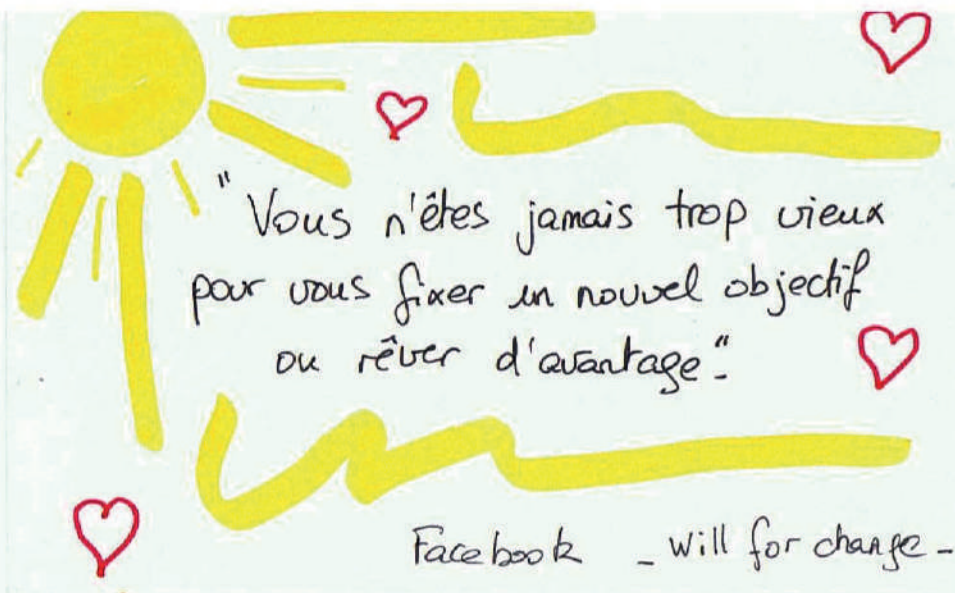 "Vous n'êtes jamais trop vieux
pour vous fixer un nouvel objectif
ou rêver d'avantage".
Facebook - will for change -